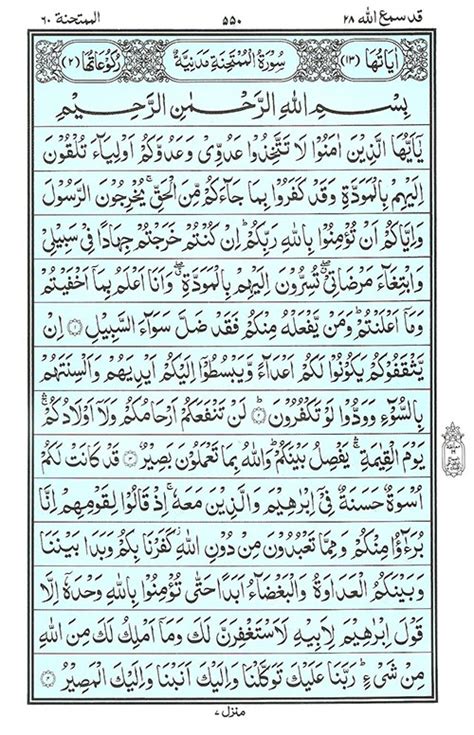 قد سمع الله ٢٨ ٥٥٠ الممتحنة ٦٠
اٰیاتها (١٣) سُوْرَةُ الْمُمْتَحِنَةِ مَدَنِیَّةٌ رکوعاتها (٢)
بِسْمِ اللهِ الرَّحْمٰنِ الرَّحِیْمِ
یٰۤاَیُّهَا الَّذِیْنَ اٰمَنُوْا لَا تَتَّخِذُوْا عَدُوِّیْ وَعَدُوَّکُمْ اَوْلِیَآءَ تُلْقُوْنَ
اِلَیْهِمْ بِالْمَوَدَّةِ وَقَدْ کَفَرُوْا بِمَا جَآءَکُمْ مِّنَ الْحَقِّ ۚ یُخْرِجُوْنَ الرَّسُوْلَ
وَاِیَّاکُمْ اَنْ تُؤْمِنُوْا بِاللهِ رَبِّکُمْ ؕ اِنْ کُنْتُمْ خَرَجْتُمْ جِهَادًا فِیْ سَبِیْلِیْ
وَابْتِغَآءَ مَرْضَاتِیْ ۖ تُسِرُّوْنَ اِلَیْهِمْ بِالْمَوَدَّةِ ۖ وَاَنَا اَعْلَمُ بِمَاۤ اَخْفَیْتُمْ
وَمَاۤ اَعْلَنْتُمْ ؕ وَمَنْ یَّفْعَلْهُ مِنْکُمْ فَقَدْ ضَلَّ سَوَآءَ السَّبِیْلِ ۝١ اِنْ
یَّثْقَفُوْکُمْ یَکُوْنُوْا لَکُمْ اَعْدَآءً وَّیَبْسُطُوْۤا اِلَیْکُمْ اَیْدِیَهُمْ وَاَلْسِنَتَهُمْ
بِالسُّوْٓءِ وَوَدُّوْا لَوْ تَکْفُرُوْنَ ۝٢ لَنْ تَنْفَعَکُمْ اَرْحَامُکُمْ وَلَاۤ اَوْلَادُکُمْ ۛۚ
یَوْمَ الْقِیٰمَةِ ۛۚ یَفْصِلُ بَیْنَکُمْ ؕ وَاللهُ بِمَا تَعْمَلُوْنَ بَصِیْرٌ ۝٣ قَدْ کَانَتْ لَکُمْ
اُسْوَةٌ حَسَنَةٌ فِیْۤ اِبْرٰهِیْمَ وَالَّذِیْنَ مَعَهٗ ۚ اِذْ قَالُوْا لِقَوْمِهِمْ اِنَّا
بُرَءٰٓؤُا مِنْکُمْ وَمِمَّا تَعْبُدُوْنَ مِنْ دُوْنِ اللهِ ؗ کَفَرْنَا بِکُمْ وَبَدَا بَیْنَنَا
وَبَیْنَکُمُ الْعَدَاوَةُ وَالْبَغْضَآءُ اَبَدًا حَتّٰی تُؤْمِنُوْا بِاللهِ وَحْدَهٗۤ اِلَّا
قَوْلَ اِبْرٰهِیْمَ لِاَبِیْهِ لَاَسْتَغْفِرَنَّ لَكَ وَمَاۤ اَمْلِكُ لَكَ مِنَ اللهِ
مِنْ شَیْءٍ ؕ رَبَّنَا عَلَیْكَ تَوَکَّلْنَا وَاِلَیْكَ اَنَبْنَا وَاِلَیْكَ الْمَصِیْرُ ۝٤
منزل ٧